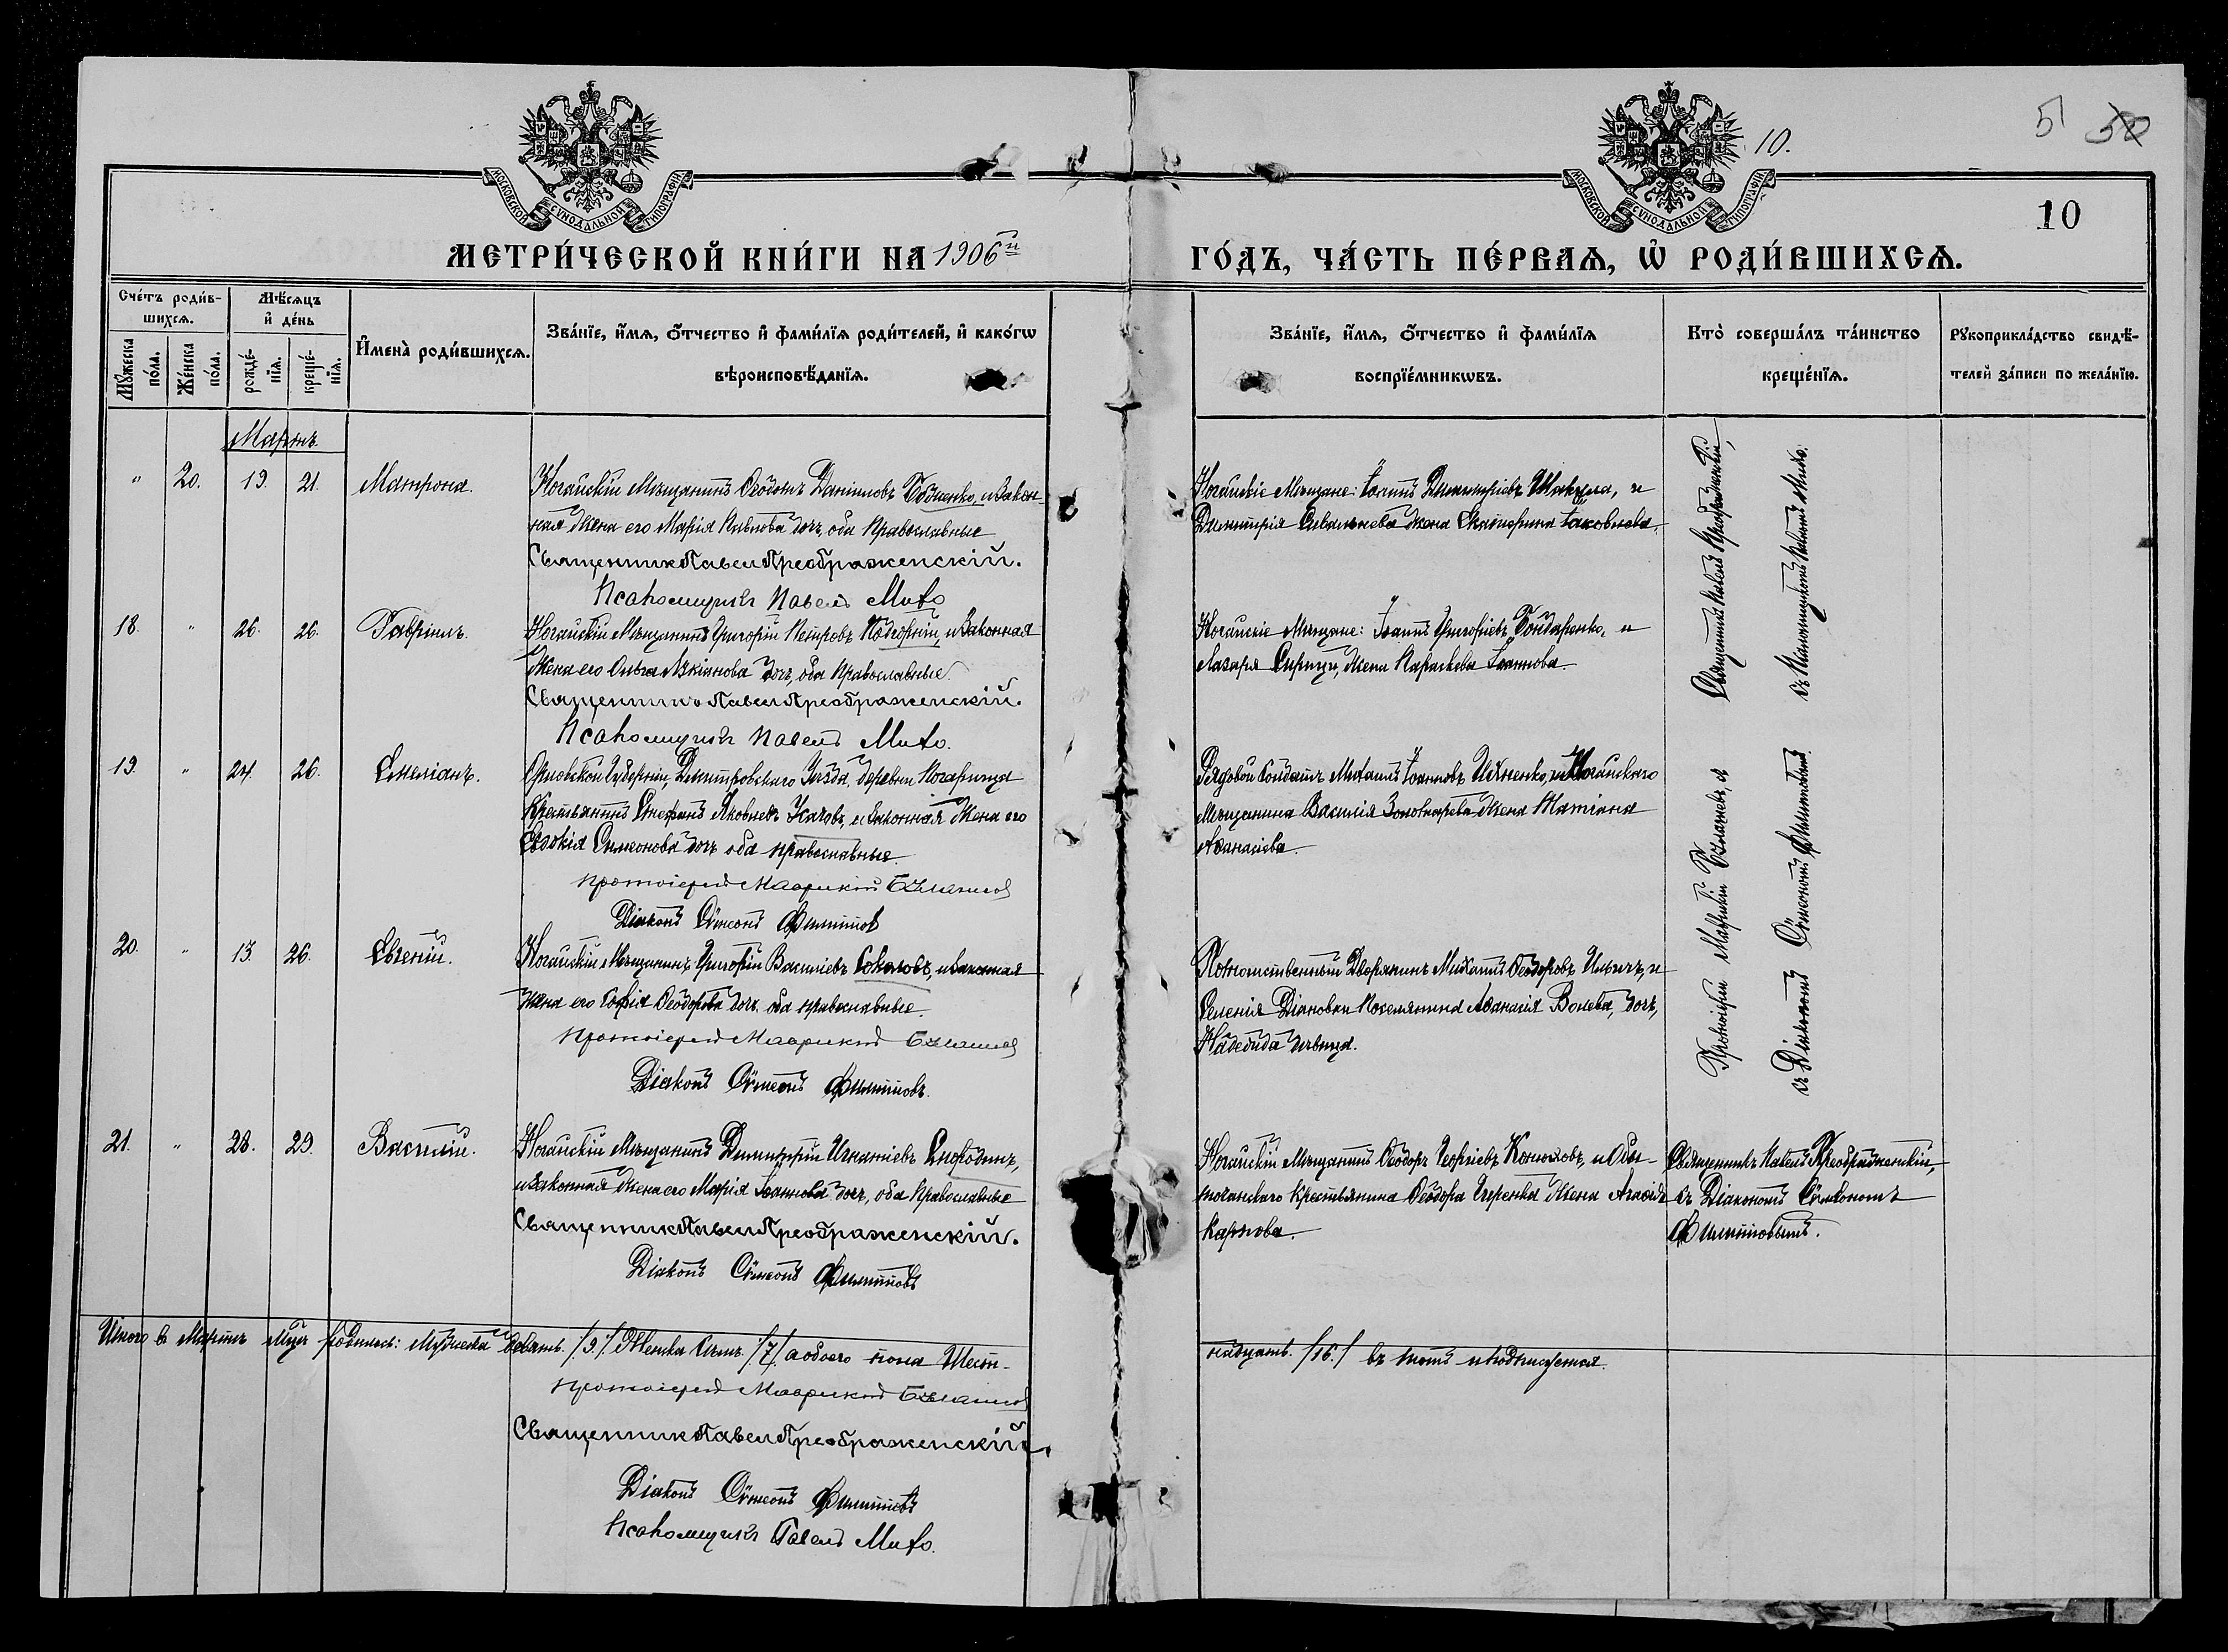 10.
5 50
10
МОСКОВСКОЙ СѴНОДАЛЬНОЙ ТИПОГРАФІИ
МОСКОВСКОЙ СѴНОДАЛЬНОЙ ТИПОГРАФІИ
МЕТРИ́ЧЕСКОЙ КНИ́ГИ НА 1906й ГО́ДЪ, ЧА́СТЬ ПЕ́РВАѦ, Ѡ҆ РОДИ́ВШИХСѦ.
Сче́тъ роди́в-
шихсѧ.
Мѣ́сѧцъ
и҆ де́нь
Мꙋ́жеска по́ла.
Же́нска по́ла.
рожде́-
нїѧ.
креще́-
нїѧ.
И҆мена̀ роди́вшихсѧ.
Зва́нїе, и҆́мѧ, ѻ҆́тчество и҆ фами́лїѧ роди́телей, и҆ како́гѡ
вѣроисповѣ́данїѧ.
Зва́нїе, и҆́мѧ, ѻ҆́тчество и҆ фами́лїѧ
воспрїе́мникѡвъ.
Кто̀ соверша́лъ та́инство
креще́нїѧ.
Рꙋкоприкла́дство свидѣ́-
телей за́писи по жела́нїю.
Мартъ.
" 20. 19. 21. Матрона.
Ногайскій Мѣщанинъ Ѳеодотъ Даніиловъ и Закон-
ная Жена его Марія Павлова дочь, оба Православные
Священник Павел Преображенскій.
Псаломщикъ Павелъ
Ногайскіе Мѣщане: Іоаннъ Димитріевъ Шакула, и
Димитрія Савельева жена Екатерина Іаковлева.
Священникъ Павелъ Преображенскій,
съ Псаломщикомъ Павломъ
18. " 26. 26. Гавріилъ.
Ногайскій Мѣщанинъ Григорій Петровъ Подгорній, и Законная
Жена его Ольга Лукіанова дочь, оба Православные.
Священникъ Павел Преображенскій.
Псаломщикъ Павелъ
Ногайскіе Мѣщане: Іоаннъ Григоріевъ Бондаренко, и
Лазаря жена Параскева Іоаннова.
19. " 24. 26. Емеліанъ.
Орловской Губерніи, Дмитровскаго Уѣзда, деревни
Крестьянинъ Стефанъ Яковлевъ и Законная Жена его
Евдокія Симеонова дочь оба православные.
Протоіерей Маврикій
Діаконъ Сѵмеонъ Филиппов
Рядовой Солдатъ Михаилъ Іоанновъ и Ногайскаго
Мѣщанина Василія Золотарева Жена Татіана
Аѳанасіева.
Протоіерей Маврикій и
съ Діакономъ Сѵмеономъ Филипповымъ.
20. " 13. 26. Евгеній.
Ногайскій Мѣщанинъ Григорій Василіевъ Соколовъ, и законная
жена его Софія Ѳеодорова дочь, оба православные.
Протоіерей Маврикій
Діаконъ Сѵмеонъ Филипповъ.
Потомственный Дворянинъ Михаилъ Ѳеодоровъ и
Селенія Діановки Поселянина Аѳанасія дочь,
Надежда дѣвица.
21. " 28. 29. Василій.
Ногайскій Мѣщанинъ Димитрій Игнатіевъ Смородинъ,
и законная Жена его Марія Іоаннова дочь, оба Православные
Священник Павел Преображенскій.
Діаконъ Сѵмеонъ Филипповъ
Ногайскій Мѣщанинъ Ѳеодоръ Георгіевъ Коноховъ, и Оби-
точанскаго Крестьянина Ѳеодора Жена Агаѳія
Карпова.
Священникъ Павелъ Преображенскій,
съ Діакономъ Сѵмеономъ
Филипповымъ.
Итого в Мартѣ Мцѣ родилось: Мужеска девять. /9./ Женска Семь. /7/ а обоего пола Шест-
надцать. /16./ въ томъ и подписуемся.
Протоіерей Маврикій
Священник Павел Преображенскій.
Діаконъ Сѵмеонъ Филипповъ
Псаломщикъ Павелъ